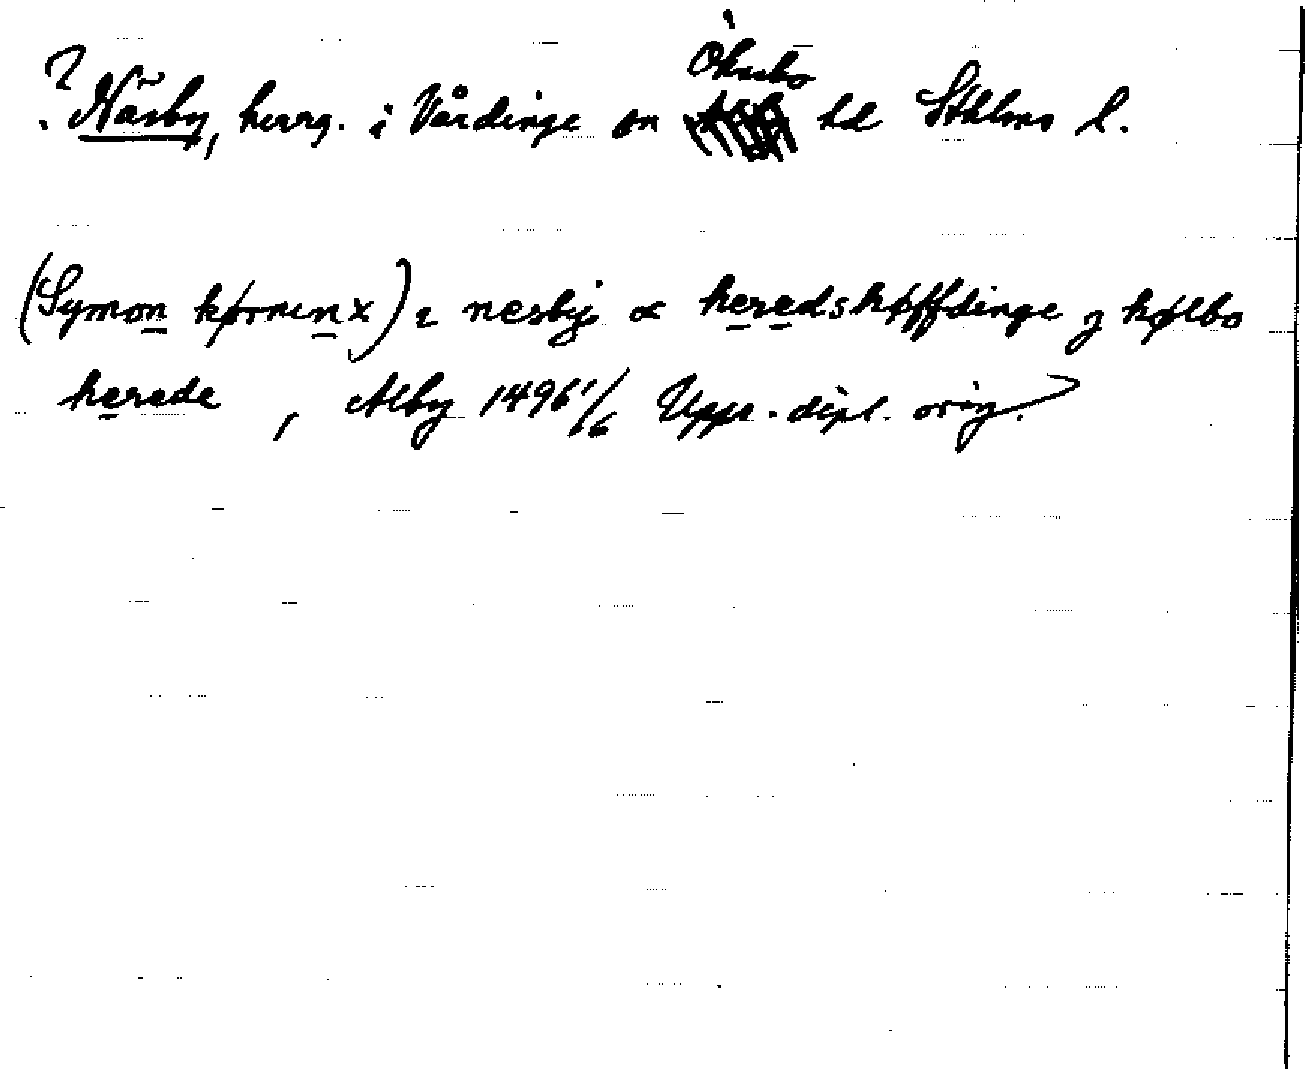 ? Näsby, herrg. i Vårdinge sn Öknebo hd Sthlms l.
(Symon kørnenx) i nesby oc heredshøffdinge j hølbo
herede, Alby 1496 1/6 Upps. dipl. orig.